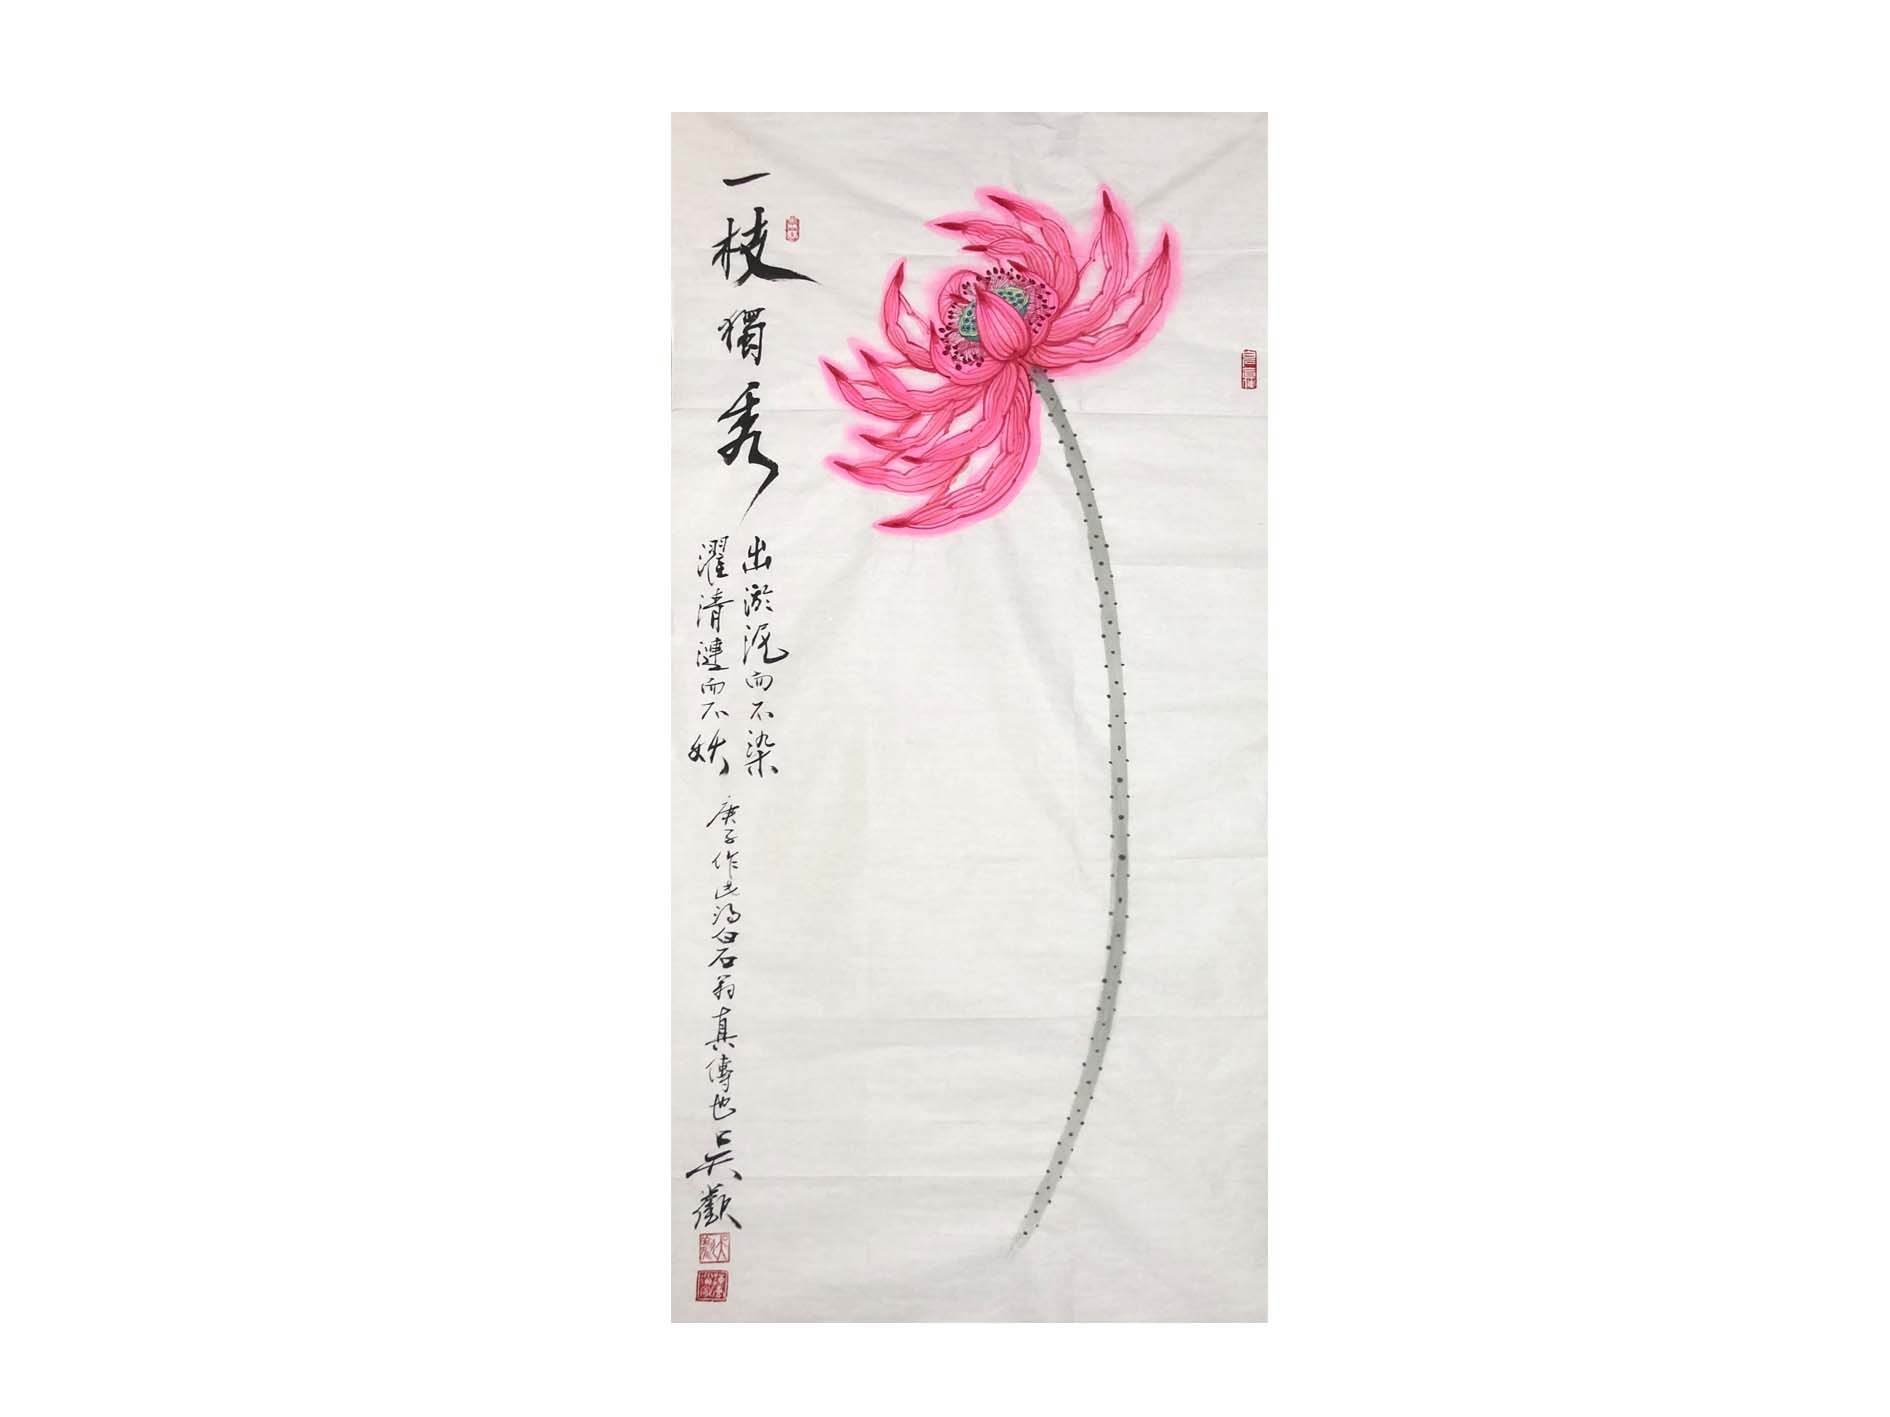 一枝獨秀
出淤泥而不染
濯清漣而不妖
庚子作此得白石翁真傳也吳歡